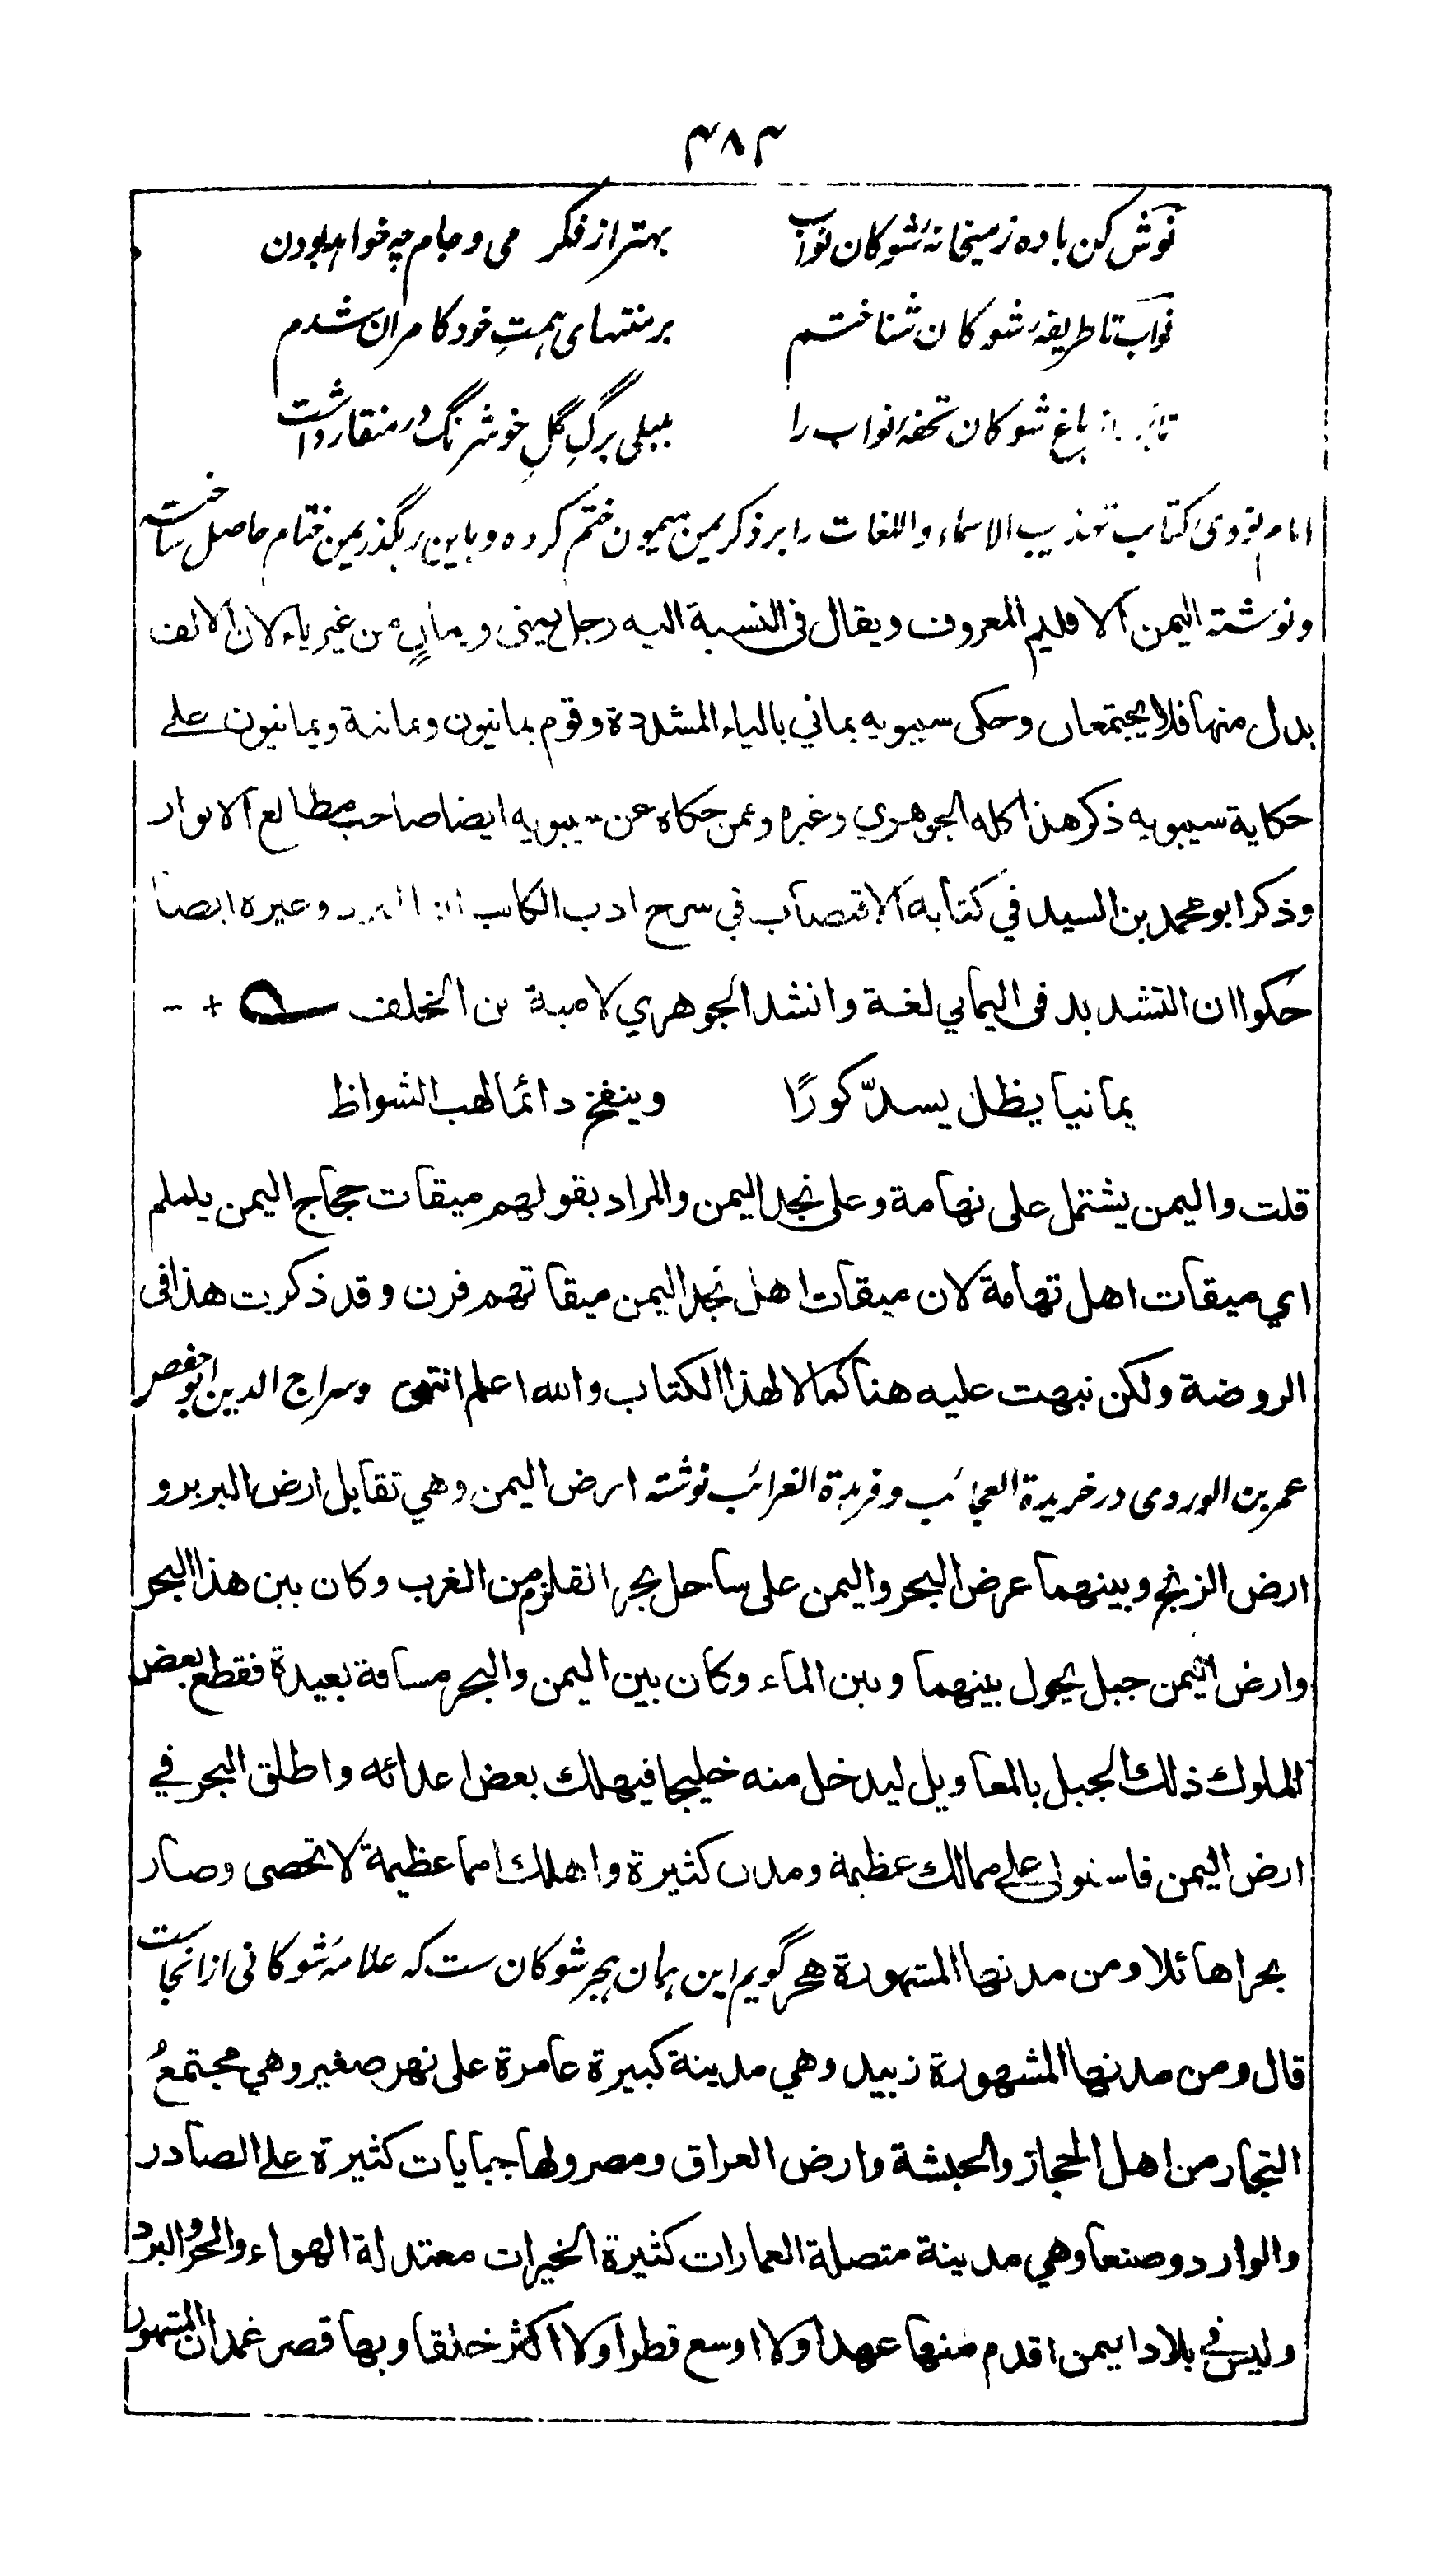 ۴۸۴
نوش کن باده ز میخانۂ شوکان نواب بهتر از فکر می و جام چه خواهد بودن
نواب تا طریقۂ شوکان شناختم بر منتهای همتِ خود کامران شدم
باغ شوکان تحفۂ نواب را بلبلی برگِ گلِ خوشرنگ در منقار داشت
امام نووی کتاب تهذیب الاسماء واللغات را بر ذکر یمن میمون ختم کرده و باین رهگذر یمن ختام حاصل ساخته
و نوشته الیمن الاقلیم المعروف ویقال فی النسبة الیه رجل یمنی ویمانٍ من غیر یاء لان الالف
بدل منها فلا یجتمعان وحکی سیبویه یماني بالیاء المشددة وقوم یمانیون ویمانية ویمانیون علی
حکایة سیبویه ذکر هذا کله الجوهري وغیره وممن حکاه عن سیبویه ایضا صاحب مطالع الانوار
وذکر ابو محمد بن السید في کتابه الاقتضاب في شرح ادب الکاتب ان المبرد وغیره ایضا
حکوا ان التشدید فی الیماني لغة وانشد الجوهري لامیة بن الخلف
یمانیا یظل یسدّ کورًا وینفخ دائما لهب الشواظ
قلت والیمن یشتمل علی تهامة وعلی نجد الیمن والمراد بقولهم میقات حجاج الیمن یلملم
اي میقات اهل تهامة لان میقات اهل نجد الیمن میقاتهم قرن وقد ذکرت هذا فی
الروضة ولکن نبهت علیه هنا کمالا لهذا الکتاب والله اعلم انتهی وسراج الدین ابو حفص
عمر بن الوردی در خریدة العجائب و فریدة الغرائب نوشته ارض الیمن وهي تقابل ارض البربر و
ارض الزنج وبینهما عرض البحر والیمن علی ساحل بحر القلزم من الغرب وکان بین هذا البحر
وارض الیمن جبل یحول بینهما وبین الماء وکان بین الیمن والبحر مسافة بعیدة فقطع بعض
الملوك ذلك الجبل بالمعاویل لیدخل منه خلیجا فیهلك بعض اعدائه واطلق البحر في
ارض الیمن فاستولی علی ممالك عظیمة ومدن کثیرة واهلك امما عظیمة لا تحصی وصار
بحرا هائلا ومن مدنها المشهورة هجر گویم این همان هجر شوکان ست که علامۂ شوکانی از انجاست
قال ومن مدنها المشهورة زبید وهي مدینة کبیرة عامرة علی نهر صغیر وهي مجتمعُ
التجار من اهل الحجاز والحبشة وارض العراق ومصر ولها جبایات کثیرة علی الصادر
والوارد وصنعا وهي مدینة متصلة العمارات کثیرة الخیرات معتدلة الهواء والحر والبرد
ولیس في بلاد الیمن اقدم منها عهدا ولا اوسع قطرا ولا اکثر خلقا وبها قصر غمدان المشهور